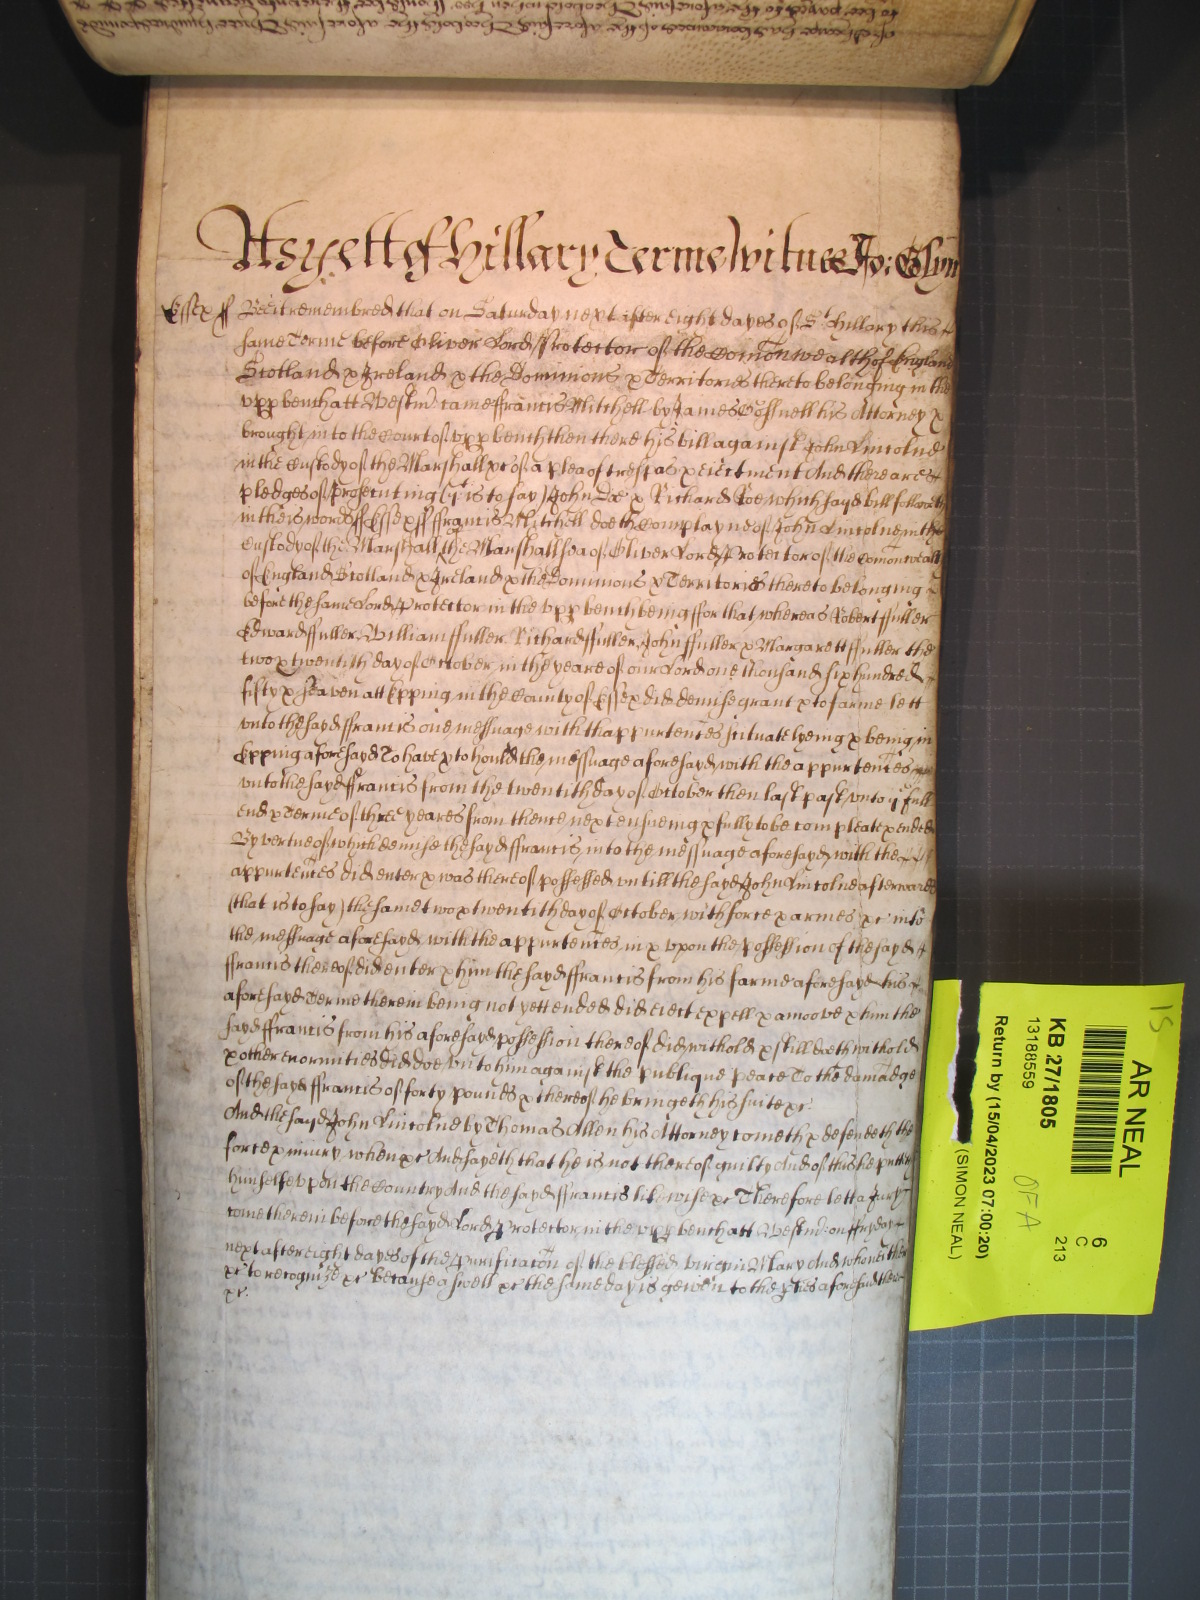 As yett of Hillary Terme Witnes Jo: Glyn
Essex ss Bee it remembred that on Saturday next after eight dayes of St. Hillary this
same Terme before Oliver Lord Protector of the Comonwealth of England
Scotland & Ireland & the Dominions & Territories thereto belonging in the
upp bench att Westmr. came Francis Mitchell by James Gosnell his Attorney &
brought into the Court of upp bench then there his bill against John Lincolne
in the Custody of the Marshall &c of a plea of trespas & eiectment And there are
pledges of prosecuting (yt is to say) John Doe & Richard Roe which sayd bill followeth
in theis words ss Essex ss ffrancis Mitchell doeth Complayne of John Lincolne in the
Custody of the Marshall of the Marshallsea of Oliver Lord Protector of the Comonwealth
of England Scotland & Ireland & the Dominions & Territories thereto belonging
before the same Lord Protector in the upp bench being ffor that whereas Robert ffuller
Edward ffuller William ffuller Richard ffuller John ffuller & Margarett ffuller the
two & twentith day of October in the yeare of our Lord one thousand six hundred
fifty & seaven att Epping in the County of Essex did demise grant & to farme lett
unto the sayd ffrancis one messuage with thappurtences scituate lyeing & being in
Epping aforesayd To have & to hould the messuage aforesayd with the appurtences
unto the sayd ffrancis from the twentith day of October then last past unto ye full
end & Terme of three yeares from thence next ensueing & fully to be compleate & ended
By vertue of which demise the sayd ffrancis into the messuage aforesayd with the
appurtences did enter & was thereof possessed untill the sayd John Lincolne afterwards
(that is to say) the same two & twentith day of October with force & armes &c into
the messuage aforesayd with the appurtences in & upon the possession of the sayd
ffrancis thereof did enter & him the sayd ffrancis from his farme aforesayd his
aforesayd Terme therein being not yett ended did eiect expell & amoove & him the
sayd ffrancis from his aforesayd possession thereof did withold & still doeth withold
& other enormities did doe unto him against the publique peace To the damadge
of the sayd ffrancis of forty pounds & thereof he bringeth his suite &c
And the sayd John Lincolne by Thomas Allen his Attorney cometh & defendeth the
force & iniury when &c And sayeth that he is not thereof guilty And of this he putteth
himselfe upon the Country And the sayd ffrancis likewise &c Therefore lett a Jury
come therein before the sayd Lord Protector in the upp bench att Westmr. on ffryday
next after eight dayes of the Purificacon of the blessed virgin Mary And who neither
&c to recognize &c because aswell &c the same day is geiven to the pties aforesaid there
&c.
15
AR NEAL
KB 27/1805
13188559
Return by (15/04/2023 07:00:20)
6
C
213
OFA
(SIMON NEAL)